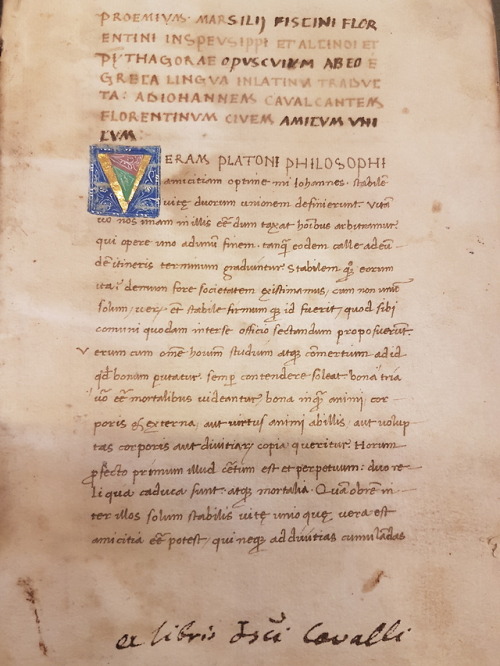 PROEMIVM. MARSILIJ FISCINI FLOR
ENTINI IN SPEVSIPPI ET ALCINOI ET
PYTHAGORAE OPVSCVLVM AB EO E
GRECA LINGVA IN LATINV TRADVC
TA: AD IOHANNEM CAVALCANTEM
FLORENTINVM CIVEM AMICVM VNI
CVM:
VERAM PLATONI PHILOSOPHI
amicitiam optime mi Iohannes. stabilē
uitę duorum unionem definierunt. Vitā
uō nos unam in illis eē dum taxat hoībus arbitramur.
qui opere uno ad unū finem. tanq̄ eodem calle ad eū-
dē itineris terminum graduntur. Stabilem q; eorum
ita; demum fore societatem existimamus, cum non unū
solum, uerȳ et stabile firmum q; id fuerit, quod sibi
comuni quodam inter se officio sectandum proposuerūt.
Verum cum omē hoīum studium atq; cōmertium ad id
qd bonum putatur, semper contendere soleat. bona tria
uō eē mortalibus uideantur. bona inq̄ animi cor-
poris et externa, aut uirtus animi ab illis, aut uolup
tas corporis aut diuitiarȳ copia queritur. Horum
profecto primum illud cētum est et perpetuum: duo re-
liqua caduca sunt. atq; mortalia. Quā obrem in-
ter illos solum stabilis uitę unio quę uera est
amicitia eē potest, qui neq; ad diuitias cumulādas
ex libris Cavalli